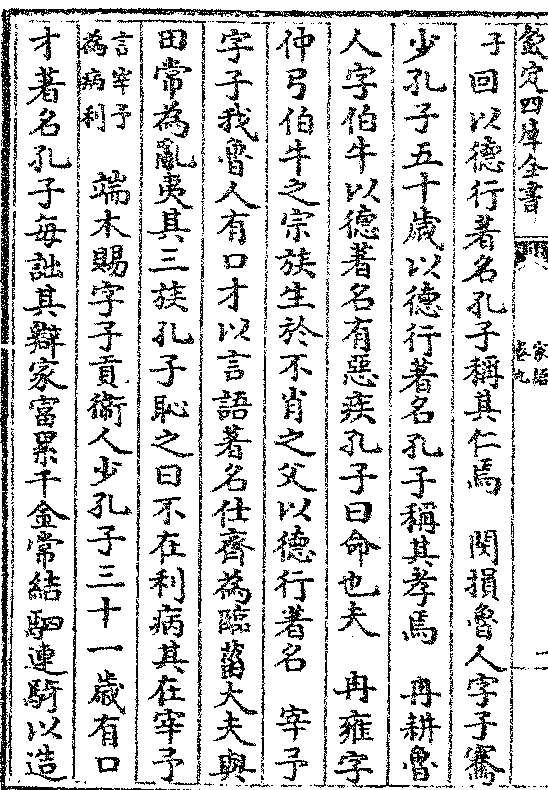 欽定四庫全書
家語
卷九
二
子回以德行著名孔子稱其仁焉　閔損魯人字子騫
少孔子五十歲以德行著名孔子稱其孝焉　冉耕魯
人字伯牛以德著名有惡疾孔子曰命也夫　冉雍字
仲弓伯牛之宗族生於不肖之父以德行著名　宰予
字子我魯人有口才以言語著名仕齊為臨菑大夫與
田常為亂夷其三族孔子恥之曰不在利病其在宰予
言宰予
為病利
端木賜字子貢衛人少孔子三十一歲有口
才著名孔子每詘其辯家富累千金常結駟連騎以造